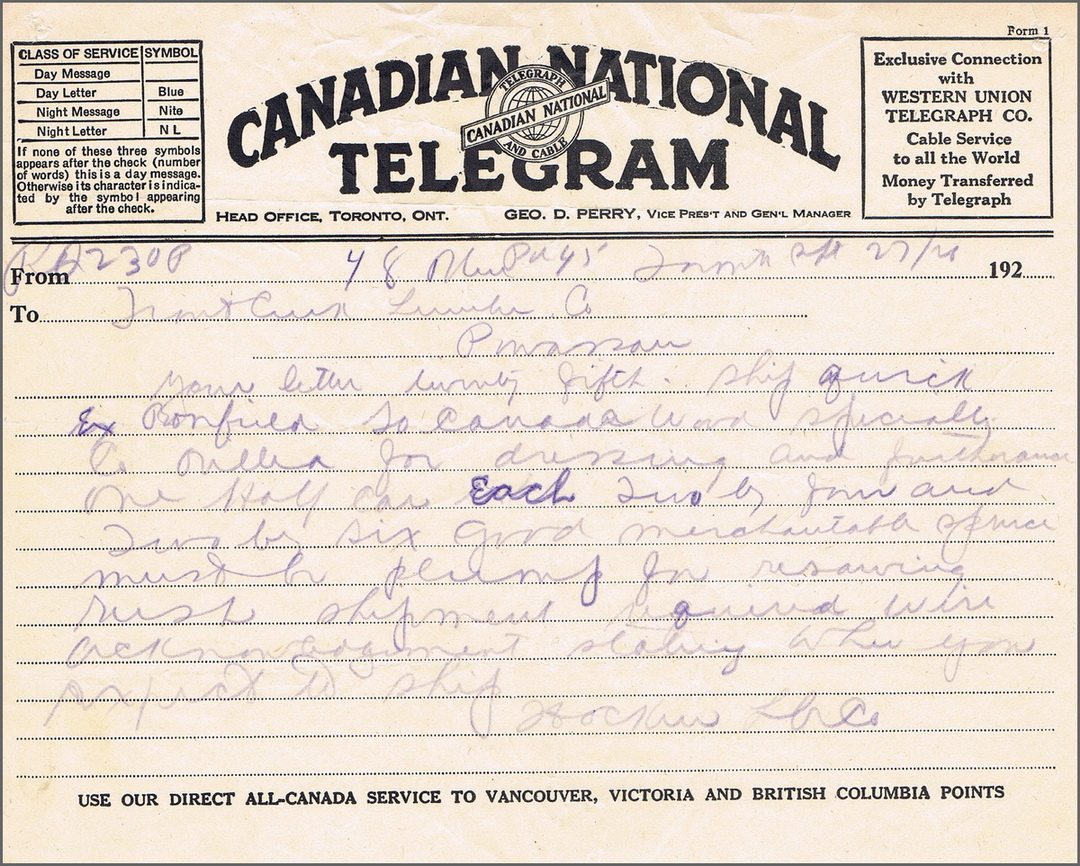 Form 1
CLASS OF SERVICE SYMBOL
Day Message
Day Letter Blue
Night Message Nite
Night Letter N L
If none of these three symbols
appears after the check (number
of words) this is a day message.
Otherwise its character is indica-
ted by the symbol appearing
after the check.
CANADIAN NATIONAL
TELEGRAM
TELEGRAPH
CANADIAN NATIONAL
AND CABLE
HEAD OFFICE, TORONTO, ONT. GEO. D. PERRY, VICE PRES'T AND GEN'L MANAGER
Exclusive Connection
with
WESTERN UNION
TELEGRAPH CO.
Cable Service
to all the World
Money Transferred
by Telegraph
230P 48 45 Toronto Sept 27/20
From 192
To Trout Creek Lumber Co
Powassan
Your letter twenty fifth. Ship quick
Ex Bonfield to Canada Wood Specialty
Co Orillia for dressing and furtherance
one Half car Each Two by four and
Two by six Good merchantable spruce
must be plump for resawing
rush shipment required wire
acknowledgment stating when you
expect to ship
Hocken Lbr Co
USE OUR DIRECT ALL-CANADA SERVICE TO VANCOUVER, VICTORIA AND BRITISH COLUMBIA POINTS